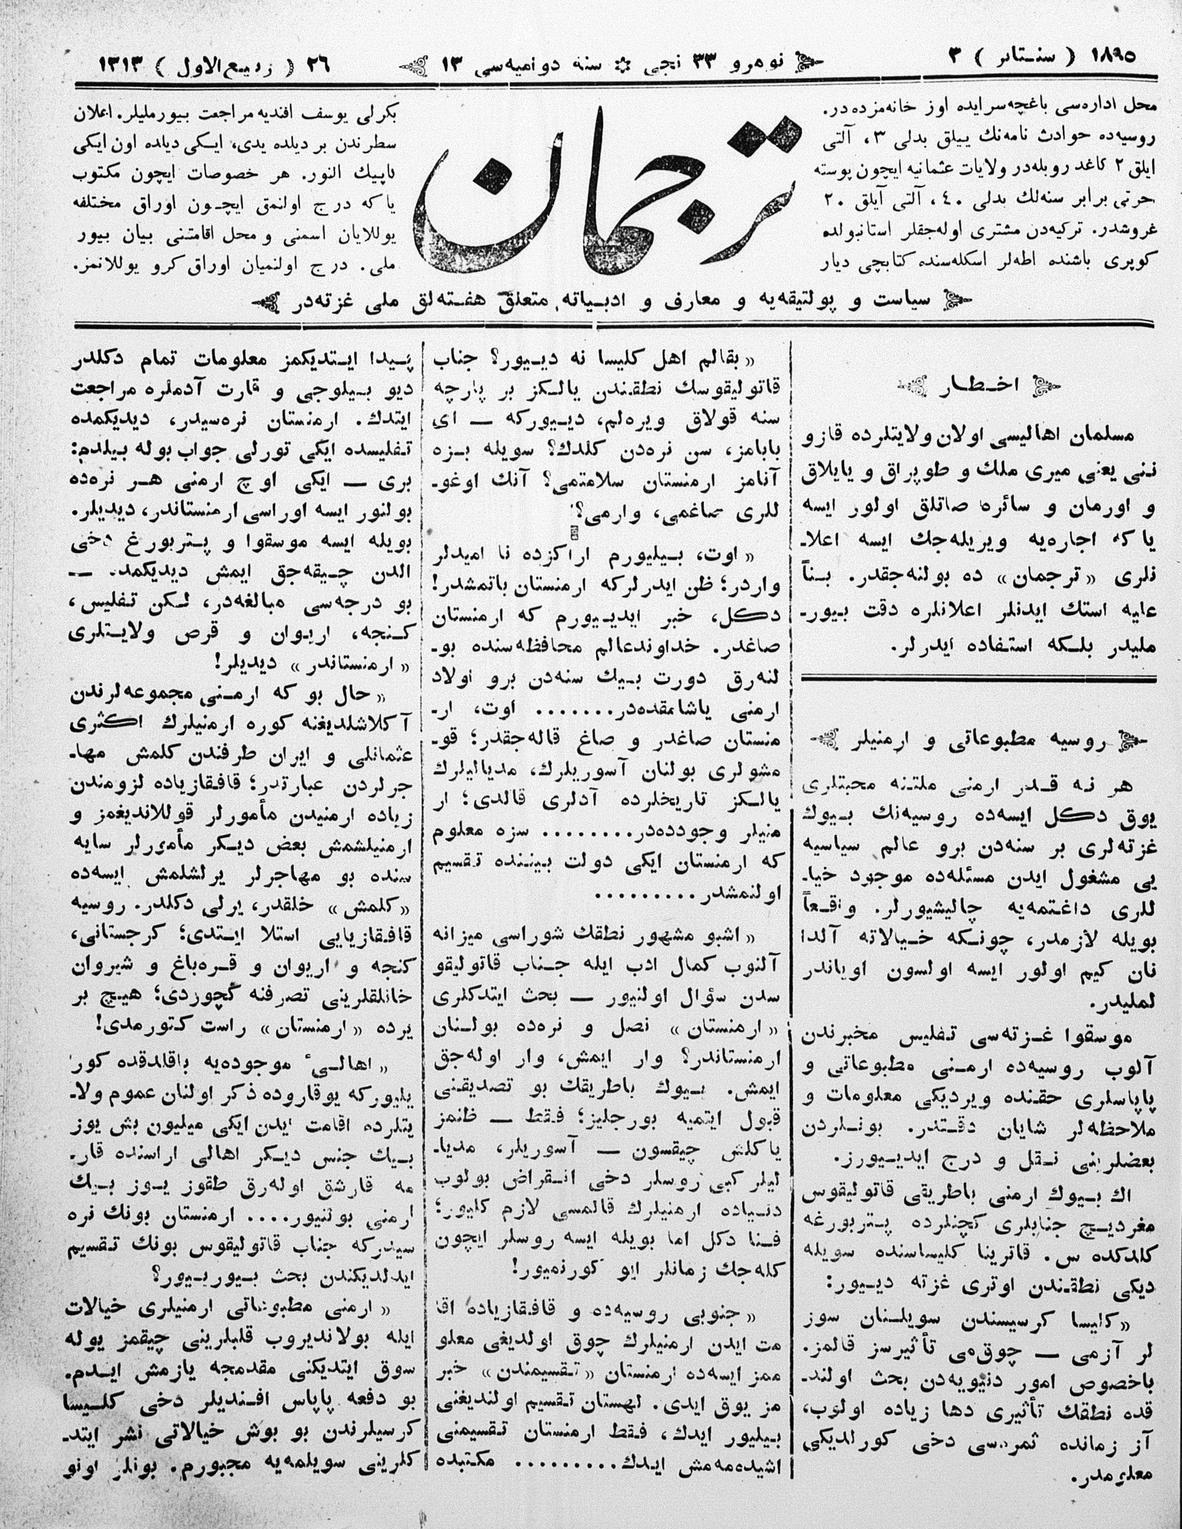 ۱۸۹۵ ( سنتابر ) ۳
نومرو ۳۳ نجی ✲ سنه دوامیه‌سی ۱۳
۲۶ ( ربیع الاول ) ۱۳۱۳
محل اداره‌سی باغچه‌سرایده اوز خانه‌مزده در.
روسیه‌ده حوادث نامه‌نك ییلق بدلی ۳، آلتی
ایلق ۲ کاغد روبله‌در ولایات عثمانیه ایچون پوسته
حرنی برابر سنه‌لك بدلی ۴۰، آلتی آیلق ۲۰
غروشدر. ترکیه‌دن مشتری اوله‌جقلر استانبولده
کوپری باشنده اطه‌لر اسکله‌سنده کتابچی دیار
ترجمان
بکرلی یوسف افندیه مراجعت بیورملیلر. اعلان
سطرندن بر دیلده یدی، ایکی دیلده اون ایکی
کاپیك النور. هر خصوصات ایچون مکتوب
یاکه درج اولنمق ایچون اوراق مختلفه
یوللایان اسمنی و محل اقامتنی بیان بیور
ملی. درج اولنمیان اوراق کرو یوللانمز.
سیاست و پولتیقه‌یه و معارف و ادبیاته متعلق هفته‌لق ملی غزته‌در
اخطار
مسلمان اهالیسی اولان ولایتلرده قازو
ننی یعنی میری ملك و طوپراق و یایلاق
و اورمان و سائره صاتلق اولور ایسه
یاکه اجاره‌یه ویریله‌جك ایسه اعلا-
نلری «ترجمان» ده بولنه‌جقدر. بناً
علیه استك ایدنلر اعلانلره دقت بیور-
ملیدر بلکه استفاده ایدرلر.
روسیه مطبوعاتی و ارمنیلر
هر نه قدر ارمنی ملتنه محبتلری
یوق دکل ایسه‌ده روسیه‌نك بیوك
غزته‌لری بر سنه‌دن برو عالم سیاسیه
یی مشغول ایدن مسئله‌ده موجود خیا-
للری داغتمه‌یه چالیشیورلر. واقعاً
بویله لازمدر، چونکه خیالاته آلدا
نان کیم اولور ایسه اولسون اویاندر
لملیدر.
موسقوا غزته‌سی تفلیس مخبرندن
آلوب روسیه‌ده ارمنی مطبوعاتی و
پاپاسلری حقنده ویردیکی معلومات و
ملاحظه‌لر شایان دقتدر. بونلردن
بعضلرینی نقل و درج ایدییورز.
اك بیوك ارمنی باطریقی قاتولیقوس
مغردیچ جنابلری کچنلرده پتربورغه
کلدکده س. قاترینا کلیساسنده سویله
دیکی نطقندن اوتری غزته دییور:
«کلیسا کرسیسندن سویلنان سوز
لر آزمی — چوق‌می تأثیرسز قالمز.
باخصوص امور دنیویه‌دن بحث اولند-
قده نطقك تأثیری دها زیاده اولوب،
آز زمانده ثمره‌سی دخی کورلدیکی
معلومدر.
«بقالم اهل کلیسا نه دییور؟ جناب
قاتولیقوسك نطقندن یالکز بر پارچه
سنه قولاق ویره‌لم، دییورکه — ای
بابامز، سن نره‌دن کلدك؟ سویله بزه
آنامز ارمنستان سلامتمی؟ آنك اوغو-
للری صاغمی، وارمی؟
«اوت، بیلیورم اراکزده نا امیدلر
واردر؛ ظن ایدرلرکه ارمنستان باتمشدر!
دکل، خبر ایدییورم که ارمنستان
صاغدر. خداوندعالم محافظه‌سنده بو-
لنه‌رق دورت بیك سنه‌دن برو اولاد
ارمنی یاشامقده‌در....... اوت، ار-
منستان صاغدر و صاغ قاله‌جقدر؛ قو-
مشولری بولنان آسوریلرك، مدیالیلرك
یالکز تاریخلرده آدلری قالدی؛ ار
منیلر وجودده‌در........ سزه معلوم
که ارمنستان ایکی دولت بیننده تقسیم
اولنمشدر..........
«اشبو مشهور نطقك شوراسی میزانه
آلنوب کمال ادب ایله جناب قاتولیقو
سدن سؤال اولنیور — بحث ایتدکلری
«ارمنستان» نصل و نره‌ده بولنان
ارمنستاندر؟ وار ایمش، وار اوله‌جق
ایمش. بیوك باطریقك بو تصدیقنی
قبول ایتمیه بورجلیز؛ فقط — ظنمز
یاکلش چیقسون — آسوریلر، مدیا-
لیلر کبی روسلر دخی انقراض بولوب
دنیاده ارمنیلرك قالمسی لازم کلیور؛
فنا دکل اما بویله ایسه روسلر ایچون
کله‌جك زمانلر ایو کورنمیور!
«جنوبی روسیه‌ده و قافقازیاده اقا
مت ایدن ارمنیلرك چوق اولدیغی معلو
ممز ایسه‌ده ارمنستان «تقسیمندن» خبر
مز یوق ایدی. لهستان تقسیم اولندیغنی
بیلیور ایدك، فقط ارمنستان تقسیمنی
اشیده‌مه‌مش ایدك......... مکتبده
پیدا ایتدیکمز معلومات تمام دکلدر
دیو بیلوجی و قارت آدملره مراجعت
ایتدك. ارمنستان نره‌سیدر، دیدیکمده
تفلیسده ایکی تورلی جواب بوله بیلدم:
بری — ایکی اوچ ارمنی هر نره‌ده
بولنور ایسه اوراسی ارمنستاندر، دیدیلر.
بویله ایسه موسقوا و پتربورغ دخی
الدن چیقه‌جق ایمش دیدیکمده —
بو درجه‌سی مبالغه‌در، لکن تفلیس،
کنجه، اریوان و قرص ولایتلری
«ارمنستاندر» دیدیلر!
«حال بو که ارمنی مجموعه‌لرندن
آکلاشلدیغنه کوره ارمنیلرك اکثری
عثمانلی و ایران طرفندن کلمش مها-
جرلردن عبارتدر؛ قافقازیاده لزومندن
زیاده ارمنیدن مأمورلر قوللاندیغمز و
ارمنیلشمش بعض دیکر مأمورلر سایه
سنده بو مهاجرلر یرلشلمش ایسه‌ده
«کلمش» خلقدر، یرلی دکلدر. روسیه
قافقازیایی استلا ایتدی؛ کرجستانی،
کنجه و اریوان و قره‌باغ و شیروان
خانلقلرینی تصرفنه کچوردی؛ هیچ بر
یرده «ارمنستان» راست کتورمدی!
«اهالیء موجوده‌یه باقلدقده کور
یلیورکه یوقاروده ذکر اولنان عموم ولا-
یتلرده اقامت ایدن ایکی میلیون بش یوز
بیك جنس دیکر اهالی اراسنده قار-
مه قارشق اوله‌رق طقوز یوز بیك
ارمنی بولنیور.... ارمنستان بونك نره
سیدرکه جناب قاتولیقوس بونك تقسیم
ایدلدیکندن بحث بیوریور؟
«ارمنی مطبوعاتی ارمنیلری خیالات
ایله بولاندیروب قلبلرینی چیقمز یوله
سوق ایتدیکنی مقدمجه یازمش ایدم.
بو دفعه پاپاس افندیلر دخی کلیسا
کرسیلرندن بو بوش خیالاتی نشر ایتد-
کلرینی سویلمه‌یه مجبورم. بونلر اونو